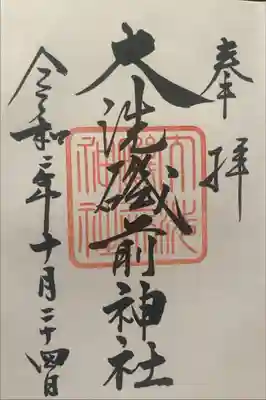 奉拝
大洗磯前神社
令和二年十月二十四日